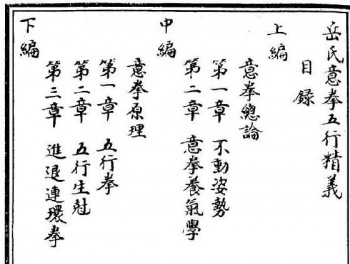 岳氏意拳五行精義
目錄
上編
意拳總論
第一章 不動姿勢
第二章 意拳養氣學
中編
意拳原理
第一章 五行拳
第二章 五行生尅
第三章 進退連環拳
下編